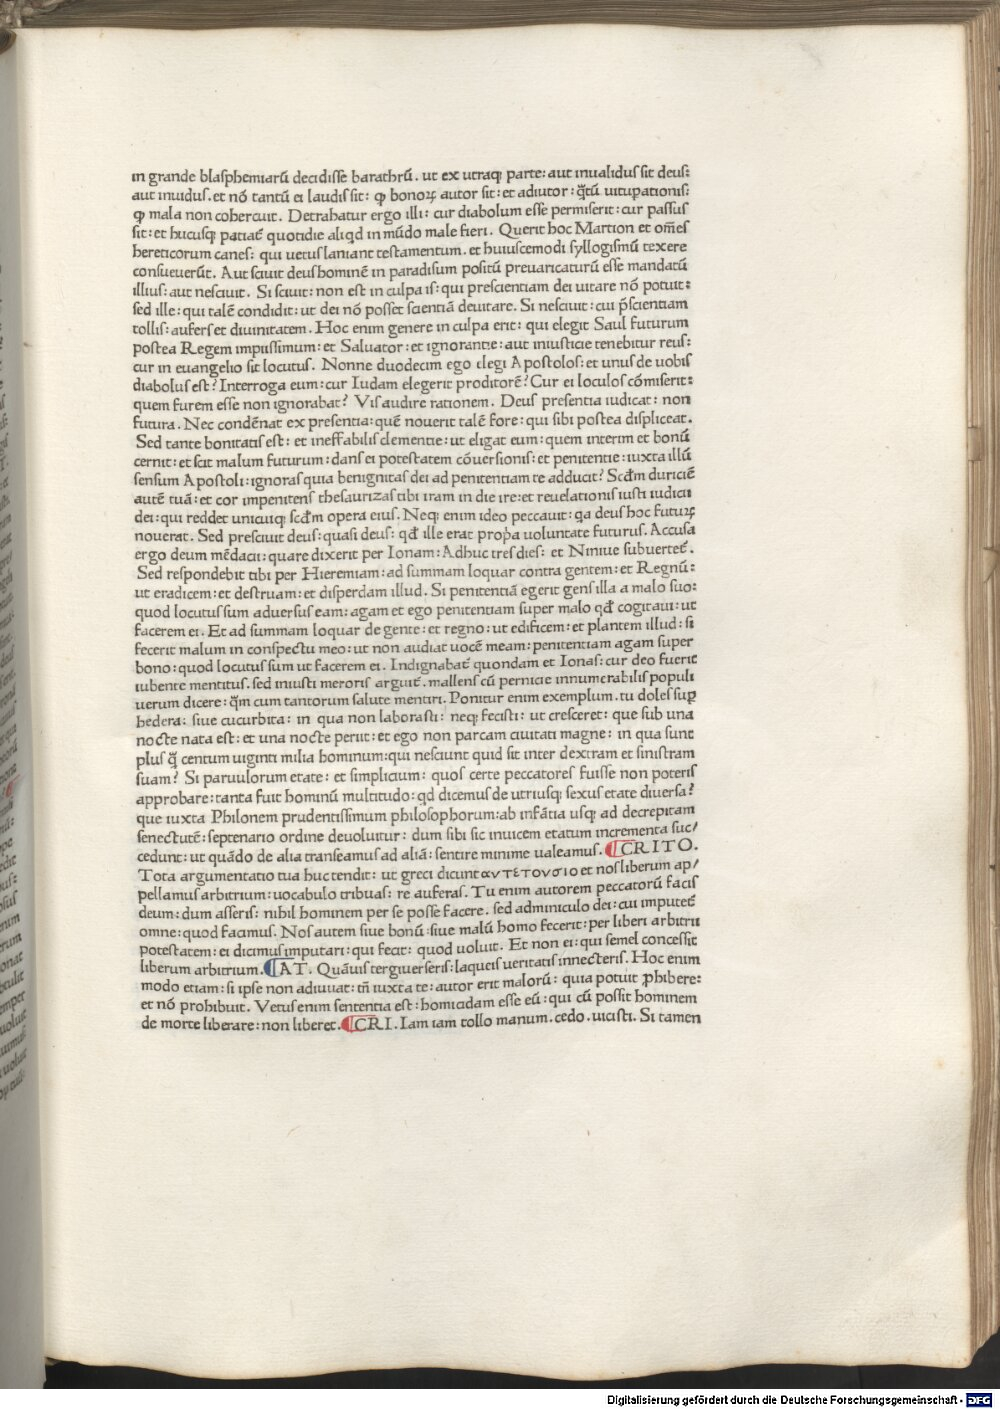 in grande blasphemiarū decidisse barathrū. ut ex utraqꝫ parte: aut inualidus sit deus:
aut inuidus. et nō tantū ei laudis sit: ꝙ bonoꝝ autor sit: et adiutor: q̄tū uituperationis:
ꝙ mala non cohercuit. Detrahatur ergo illi: cur diabolum esse permiserit: cur passus
sit: et hucusqꝫ patiat᷑ quotidie aliqd in mūdo male fieri. Querit hoc Martion et om̄es
hereticorum canes: qui uetus laniant testamentum. et huiuscemodi syllogismū texere
consueuerūt. Aut sciuit deus hominē in paradisum positū preuaricaturū esse mandatū
illius: aut nesciuit. Si sciuit: non est in culpa is: qui prescientiam dei uitare nō potuit:
sed ille: qui talē condidit: ut dei nō posset scientiā deuitare. Si nesciuit: cui p̄scientiam
tollis: aufers et diuinitatem. Hoc enim genere in culpa erit: qui elegit Saul futurum
postea Regem impiissimum: et Saluator: et ignorantie: aut iniusticie tenebitur reus:
cur in euangelio sit locutus. Nonne duodecim ego elegi Apostolos: et unus de uobis
diabolus est? Interroga eum: cur Iudam elegerit proditorē? Cur ei loculos cōmiserit:
quem furem esse non ignorabat? Vis audire rationem. Deus presentia iudicat: non
futura. Nec condēnat ex presentia: quē nouerit talē fore: qui sibi postea displiceat.
Sed tante bonitatis est: et ineffabilis clementie: ut eligat eum: quem interim et bonū
cernit: et scit malum futurum: dans ei potestatem cōuersionis: et penitentie: iuxta illū
sensum Apostoli: ignoras quia benignitas dei ad penitentiam te adducit? Scd̄m duriciē
autē tuā: et cor impenitens thesaurizas tibi iram in die ire: et reuelationis iusti iudicii
dei: qui reddet unicuiqꝫ scd̄m opera eius. Neqꝫ enim ideo peccauit: qa deus hoc futuꝝ
nouerat. Sed presciuit deus: quasi deus: qd̄ ille erat prop̄a uoluntate futurus. Accusa
ergo deum mēdacii: quare dixerit per Ionam: Adhuc tres dies: et Niniue subuertet᷑.
Sed respondebit tibi per Hieremiam: ad summam loquar contra gentem: et Regnū:
ut eradicem: et destruam: et disperdam illud. Si penitentiā egerit gens illa a malo suo:
quod locutus sum aduersus eam: agam et ego penitentiam super malo qd̄ cogitaui: ut
facerem ei. Et ad summam loquar de gente: et regno: ut edificem: et plantem illud: si
fecerit malum in conspectu meo: ut non audiat uocē meam: penitentiam agam super
bono: quod locutus sum ut facerem ei. Indignabat᷑ quondam et Ionas: cur deo fuerit
iubente mentitus. sed iniusti meroris arguit᷑. mallens cū pernicie innumerabilis populi
uerum dicere: q̄m cum tantorum salute mentiri. Ponitur enim exemplum. tu doles suꝑ
hedera: siue cucurbita: in qua non laborasti: neqꝫ fecisti: ut cresceret: que sub una
nocte nata est: et una nocte periit: et ego non parcam ciuitati magne: in qua sunt
plus q̄ centum uiginti milia hominum: qui nesciunt quid sit inter dextram et sinistram
suam? Si paruulorum etate: et simplicium: quos certe peccatores fuisse non poteris
approbare: tanta fuit hominū multitudo: qd dicemus de utriusqꝫ sexus etate diuersa?
que iuxta Philonem prudentissimum philosophorum: ab infātia usqꝫ ad decrepitam
senectutē: septenario ordine deuoluitur: dum sibi sic inuicem etatum incrementa suc/
cedunt: ut quādo de alia transeamus ad aliā: sentire minime ualeamus. ¶CRITO.
Tota argumentatio tua huc tendit: ut greci dicunt αυτετουσιο et nos liberum ap/
pellamus arbitrium: uocabulo tribuas: re auferas. Tu enim autorem peccatorū facis
deum: dum asseris: nihil hominem per se posse facere. sed adminiculo dei: cui imputet᷑
omne: quod facimus. Nos autem siue bonū: siue malū homo fecerit: per liberi arbitrii
potestatem: ei dicimus imputari: qui fecit: quod uoluit. Et non ei: qui semel concessit
liberum arbitrium. ¶AT. Quāuis tergiuerseris: laqueis ueritatis innecteris. Hoc enim
modo etiam: si ipse non adiuuat: tn̄ iuxta te: autor erit malorū: quia potuit ꝓhibere:
et nō prohibuit. Vetus enim sententia est: homicidam esse eū: qui cū possit hominem
de morte liberare: non liberet. ¶CRI. Iam iam tollo manum. cedo. uicisti. Si tamen
Digitalisierung gefördert durch die Deutsche Forschungsgemeinschaft - DFG